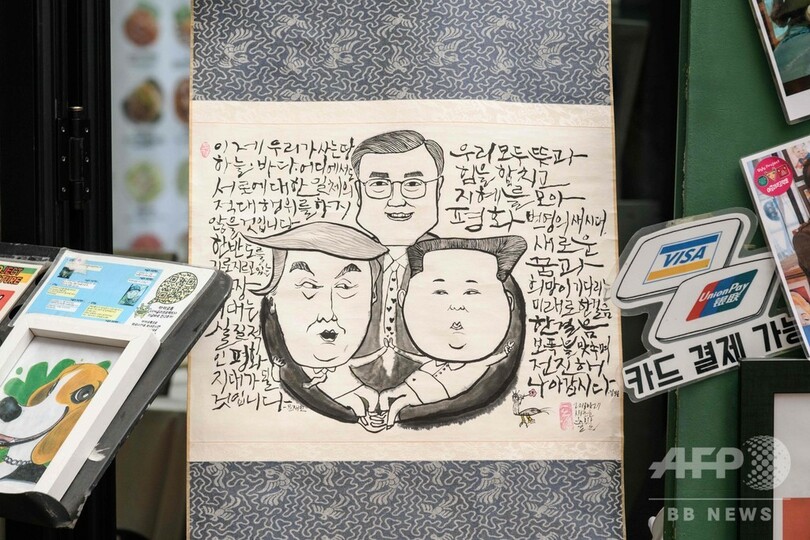 이제 우리가 사는 땅
하늘, 바다, 어디에서도
서로에 대한 일체의
적대행위를 하지
않을 것입니다.
한반도를
가로지르고 있는
지대는
실질적
인 평화
지대가 될
것입니다.
우리 모두 뚜벅
힘을 합치고
지혜를 모아
평화
번영의 새 시대,
새로운
꿈과
희망이 기다리는
미래로 한걸음
한걸음
보폭을 맞추며
전진하여
나아갑시다
VISA
UnionPay
银联
카드 결제 가능
AFP
BB NEWS